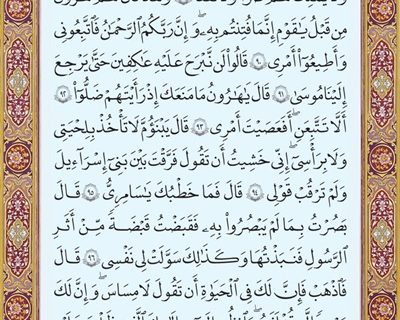 مِن قَبْلُ يَٰقَوْمِ إِنَّمَا فُتِنتُم بِهِۦۖ وَإِنَّ رَبَّكُمُ ٱلرَّحْمَٰنُ فَٱتَّبِعُونِى
وَأَطِيعُوٓا۟ أَمْرِى ۝٩٠ قَالُوا۟ لَن نَّبْرَحَ عَلَيْهِ عَٰكِفِينَ حَتَّىٰ يَرْجِعَ
إِلَيْنَا مُوسَىٰ ۝٩١ قَالَ يَٰهَٰرُونُ مَا مَنَعَكَ إِذْ رَأَيْتَهُمْ ضَلُّوٓا۟ ۝٩٢
أَلَّا تَتَّبِعَنِۖ أَفَعَصَيْتَ أَمْرِى ۝٩٣ قَالَ يَبْنَؤُمَّ لَا تَأْخُذْ بِلِحْيَتِى
وَلَا بِرَأْسِىٓۖ إِنِّى خَشِيتُ أَن تَقُولَ فَرَّقْتَ بَيْنَ بَنِىٓ إِسْرَٰٓءِيلَ
وَلَمْ تَرْقُبْ قَوْلِى ۝٩٤ قَالَ فَمَا خَطْبُكَ يَٰسَٰمِرِىُّ ۝٩٥ قَالَ
بَصُرْتُ بِمَا لَمْ يَبْصُرُوا۟ بِهِۦ فَقَبَضْتُ قَبْضَةً مِّنْ أَثَرِ
ٱلرَّسُولِ فَنَبَذْتُهَا وَكَذَٰلِكَ سَوَّلَتْ لِى نَفْسِى ۝٩٦ قَالَ
فَٱذْهَبْ فَإِنَّ لَكَ فِى ٱلْحَيَوٰةِ أَن تَقُولَ لَا مِسَاسَۖ وَإِنَّ لَكَ